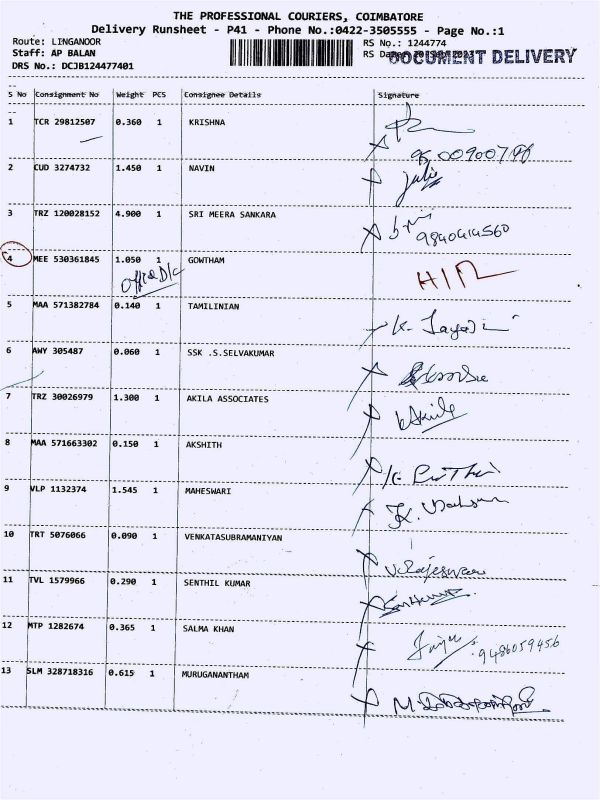 THE PROFESSIONAL COURIERS, COIMBATORE
Delivery Runsheet - P41 - Phone No.:0422-3505555 - Page No.:1
Route: LINGANOOR
RS No.: 1244774
Staff: AP BALAN
RS DOCUMENT DELIVERY
DRS No.: DCJB124477401
S No Consignment No Weight PCS Consignee Details Signature
1 TCR 29812507 0.360 1 KRISHNA
2 CUD 3274732 1.450 1 NAVIN
3 TRZ 120028152 4.900 1 SRI MEERA SANKARA
9840414560
4 MEE 530361845 1.050 1 GOWTHAM
5 MAA 571382784 0.140 1 TAMILINIAN
6 AWY 305487 0.060 1 SSK .S.SELVAKUMAR
7 TRZ 30026979 1.300 1 AKILA ASSOCIATES
8 MAA 571663302 0.150 1 AKSHITH
9 VLP 1132374 1.545 1 MAHESWARI
10 TRT 5076066 0.090 1 VENKATASUBRAMANIYAN
11 TVL 1579966 0.290 1 SENTHIL KUMAR
12 MTP 1282674 0.365 1 SALMA KHAN
9486059456
13 SLM 328718316 0.615 1 MURUGANANTHAM